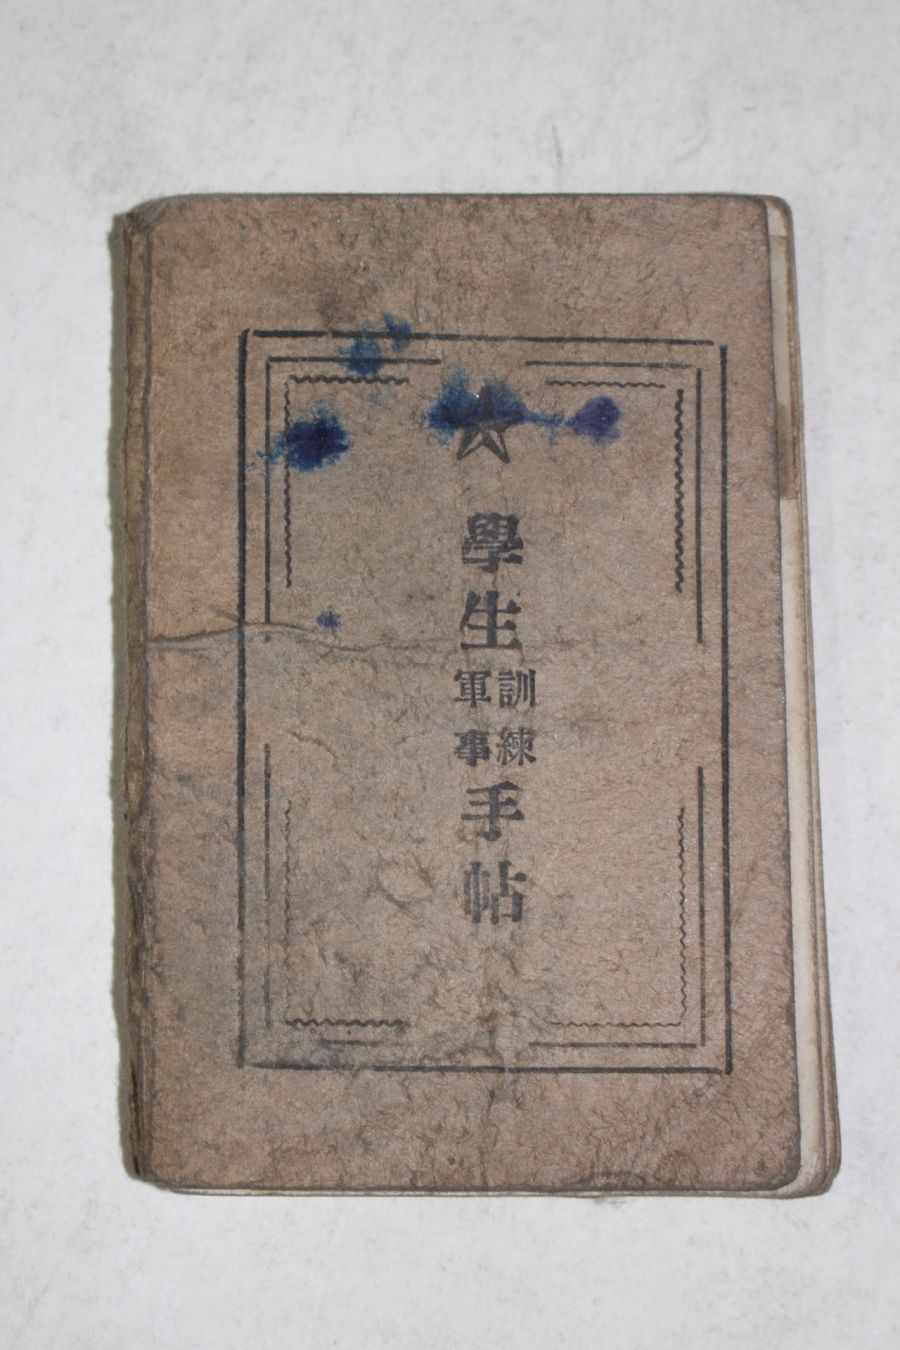 學生
軍事
訓練
手帖